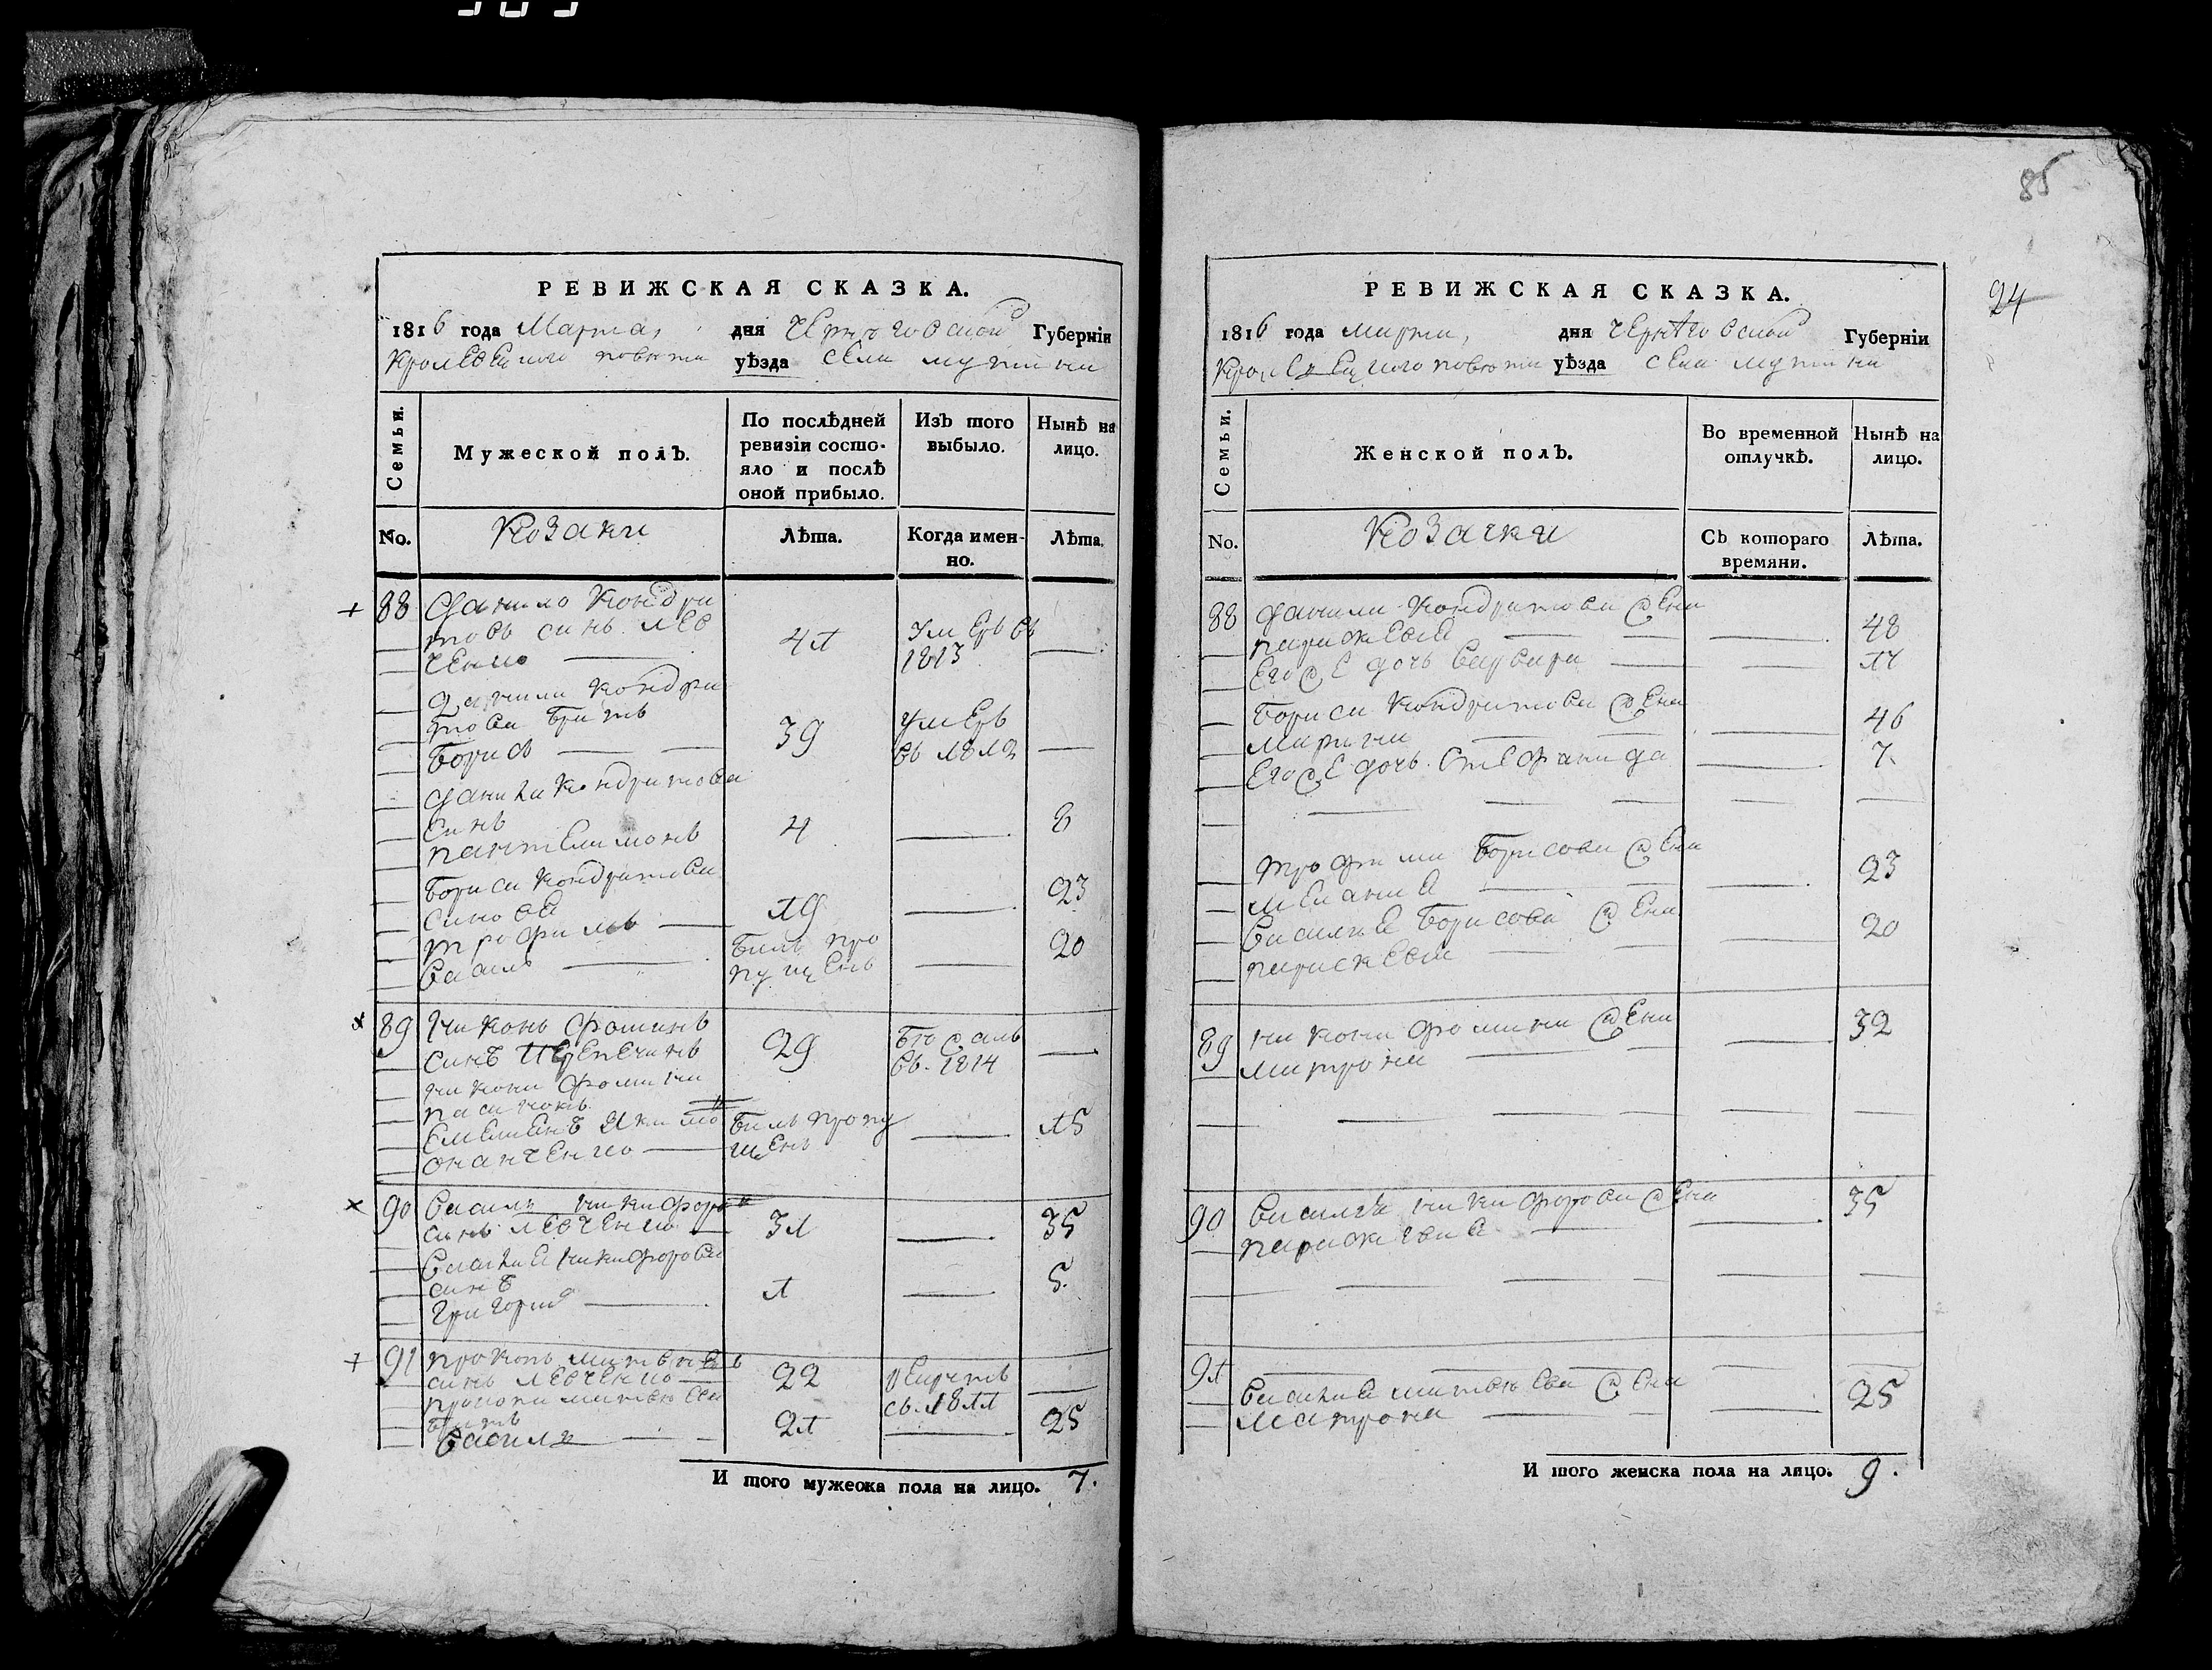 85
24
РЕВИЖСКАЯ СКАЗКА.
1816 года Марта, дня Черниговской Губерніи
Кролевецкого повета уѣзда села мутина
Семьи.
Мужеской полъ.
По послѣдней ревизіи состо-
яло и послѣ
оной прибыло.
Изъ того
выбыло.
Нынѣ на
лицо.
No.
Козаки
Лѣта.
Когда имен-
но.
Лѣта.
88 Данило Кондра
товъ синъ лев
ченко 41 умеръ въ
1813
Данили Кондра
това братъ
Борисъ 39 умеръ
въ 1812
Данили Кондратова
синъ
пантелимонъ 4 8
Бориса Кондратова
синове
трофимъ 19 23
Василь билъ про
пущенъ 20
89 Никонъ Фоминъ
синъ 29
въ 1814
никона Фомина
пасинокъ
Емелианъ
билъ пропу
щенъ 15
90 Василь никифоровъ
синъ левченко 31 35
василия никифорова
синъ
григорий 1 5.
91 прокопъ
синъ левченко 22
въ 1811
братъ
Василь 21 25
И того мужеска пола на лицо. 7.
РЕВИЖСКАЯ СКАЗКА.
1816 года марта, дня Черниговской Губерніи
Кролевецкого повета уѣзда села мутина
Семьи.
Женской полъ.
Во временной
отлучкѣ.
Нынѣ на
лицо.
No.
Козачки
Съ котораго
времяни.
Лѣта.
88 Данили Кондратова жена
48
Его же дочь варвара 14
Бориса Кондратова жена
марина 46
Его же дочь Стефанида 7.
трофима Борисова жена
мелания 23
василия Борисова жена
20
89 никона фомина жена
матрона 32
90 василия никифорова жена
35
91
василия жена
матрона 25
И того женска пола на лицо. 9.